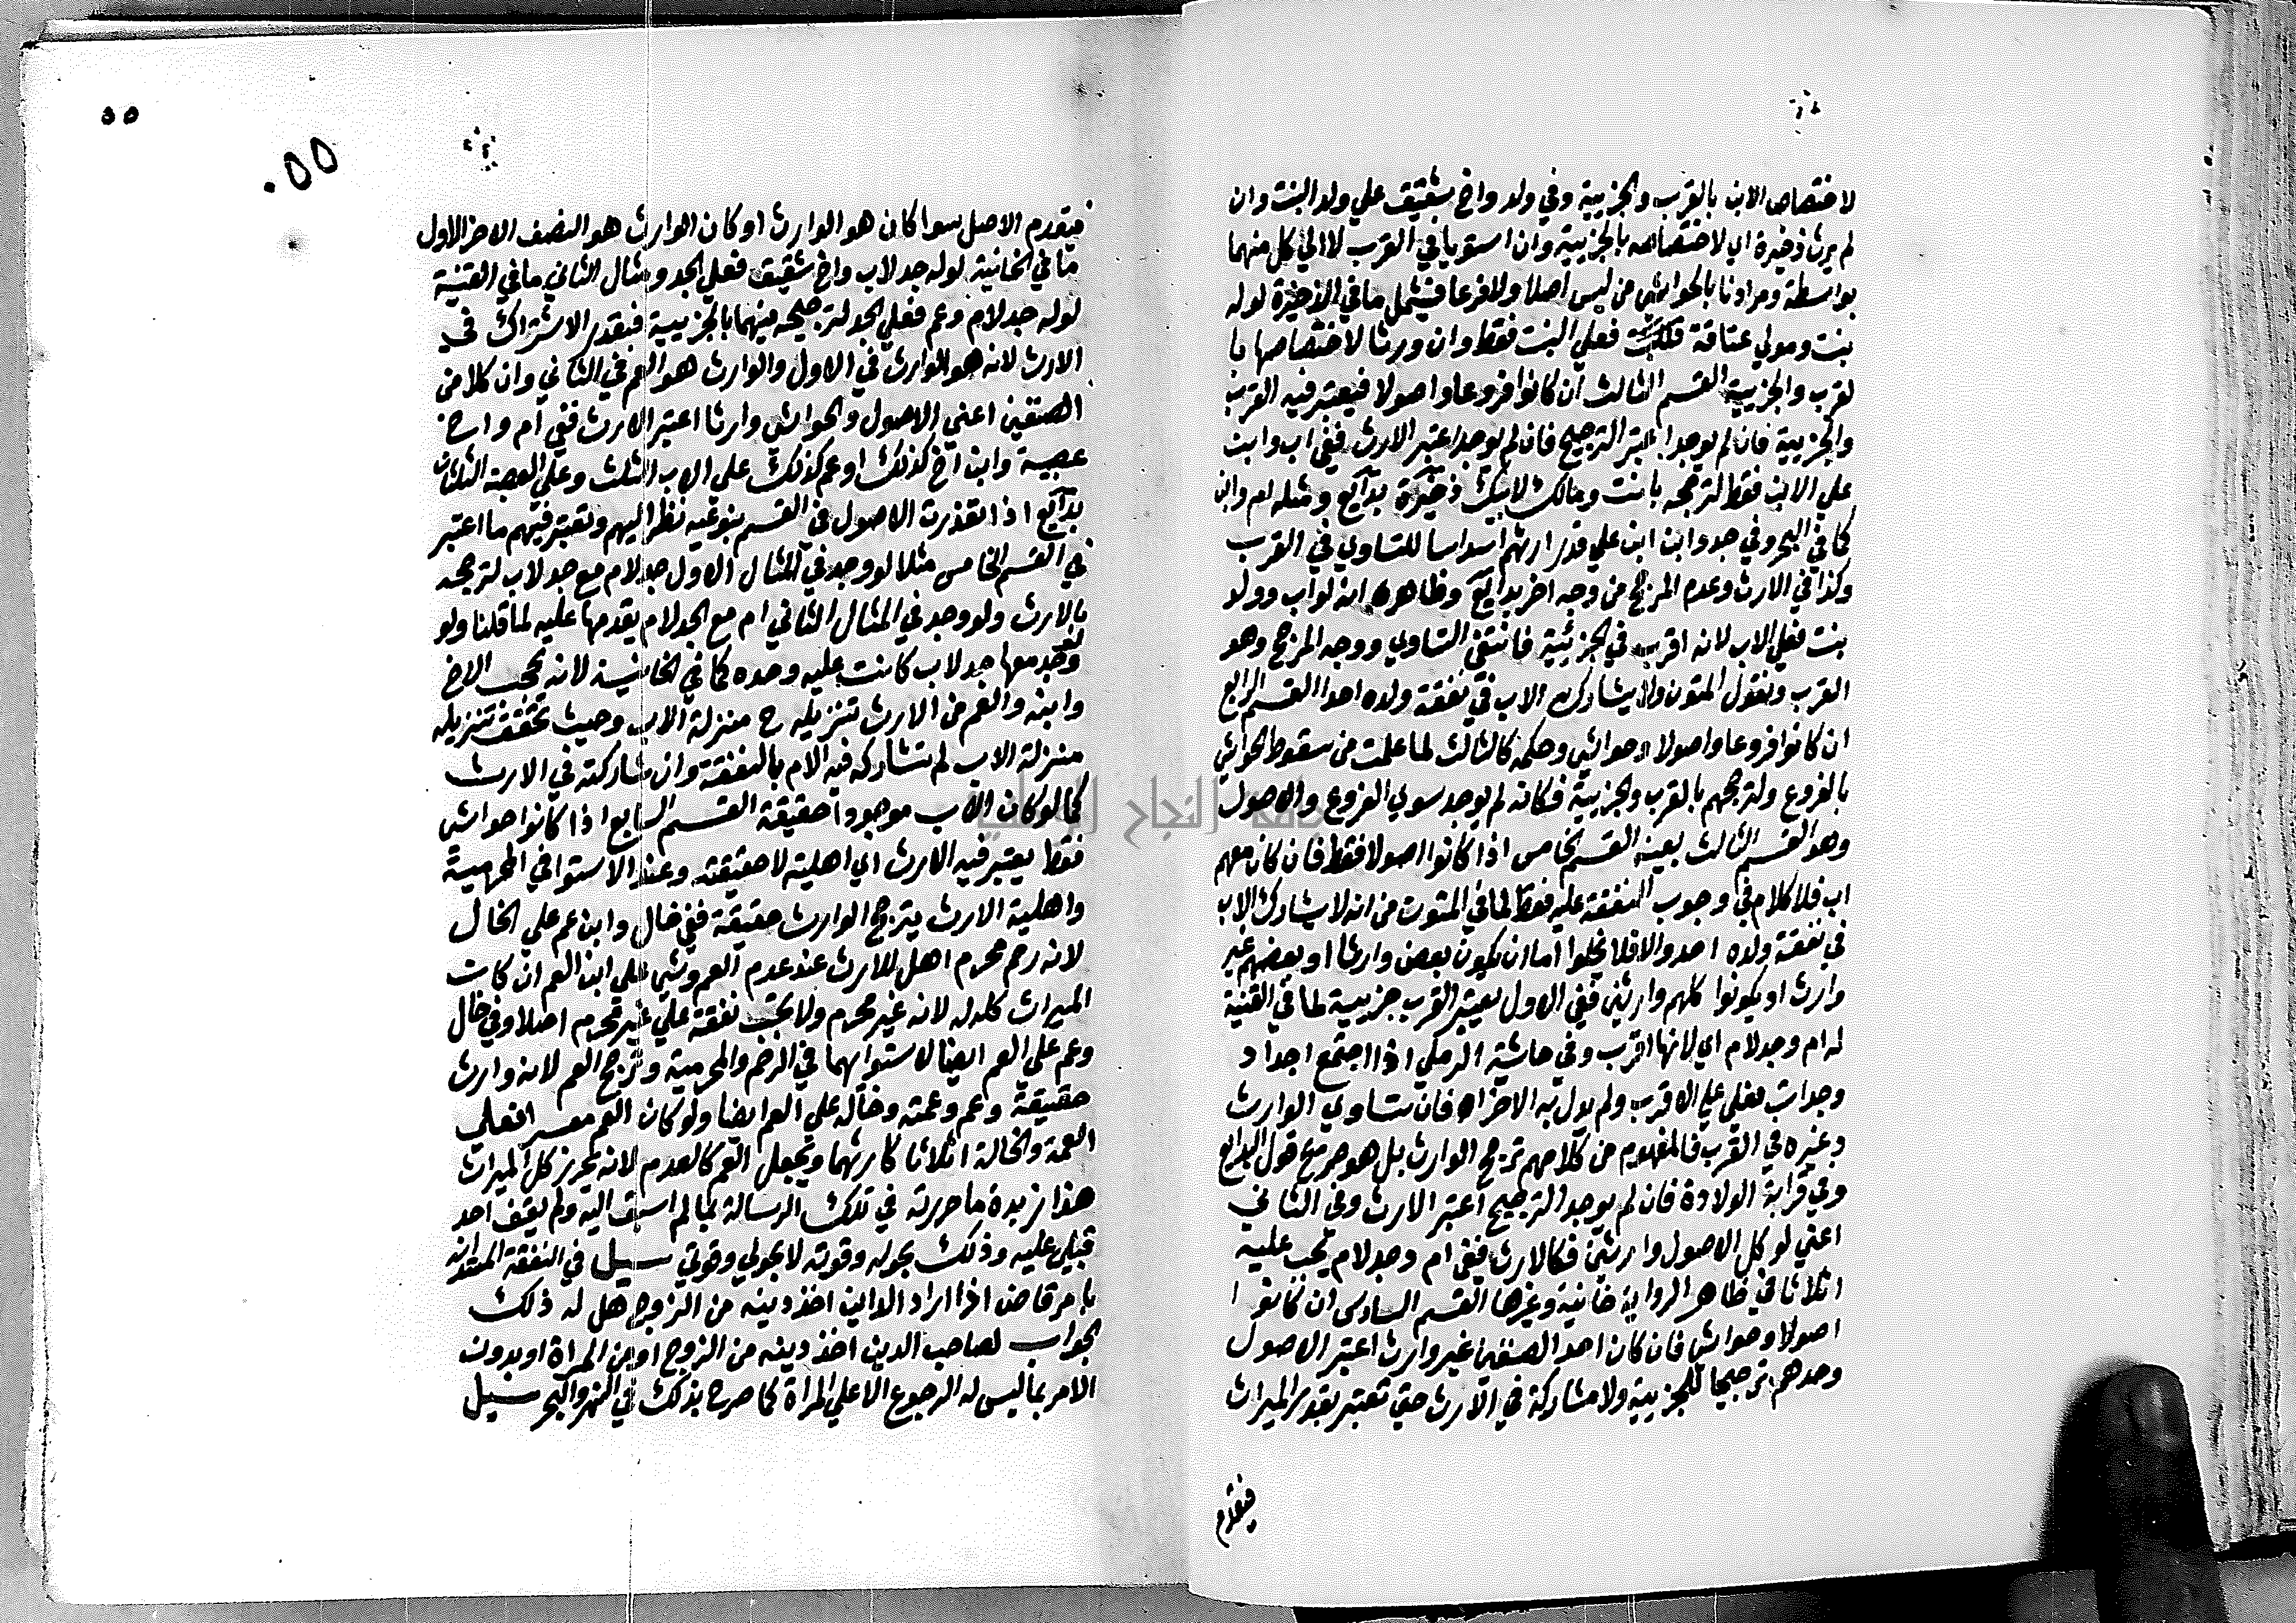 لاختصاص الابن بالقرب والجزيية وفي ولد واخ شقيق علي ولد البنت وان
لم يرث ذخيرة اي لاختصاصه بالجزيية وان استويا في القرب لادلاء كل منهما
بواسطة ومرادنا بالحواشي من ليس اصلا ولا فرعا فيشمل ما في الذخيرة لوله
بنت ومولي عتاقة فعلي البنت فقط وان ورثا لاختصاصها با
لقرب والجزيية القسم الثالث ان كانوا فروعا واصولا فيعتبر فيه القرب
والجزيية فان لم يوجد اعتبر الترجيح فان لم يوجد اعتبر الارث ففي اب وابن
علي الابن فقط لترجحه بانت ومالك لابيك ذخيرة بدايع ومثله ام وابن
كما في البحر وفي جد وابن ابن علي قدر ارثهم اسداسا للتساوي في القرب
وكذا في الارث وعدم المرجح من وجه اخر بدايع وظاهره انه لو اب وولد
بنت فعلي الاب لانه اقرب في الجزئية فانتفي التساوي ووجد المرجح وهو
القرب ونقول المتون ولا يشارك الاب في نفقة ولده احد القسم الرابع
ان كانوا فروعا واصولا وحواشي وحكمه كالثالث لما علمت من سقوط الحواشي
بالفروع ولترجحهم بالقرب والجزيية فكانه لم يوجد سوي الفروع والاصول
وهو القسم الثالث بعينه القسم الخامس اذا كانوا اصولا فقط فان كان معهم
اب فلا كلام في وجوب النفقة عليه فقط لما في المتون من انه لا يشارك الاب
في نفقة ولده احد والا فلا يخلوا اما ان يكون بعض وارثا او بعضهم غير
وارث او يكونوا كلهم وارثين ففي الاول يعتبر القرب جزيية لما في القنية
له ام وجد لام اي لانها اقرب وفي حاشية الرملي اذا اجتمع اجداد
وجدات فعلي علي الاقرب ولم يدل به الاخر اه فان تساوي الوارث
وغيره في القرب فالمفهوم من كلامهم ترجح الوارث بل هو صريح قول البدايع
وفي قرابة الولادة فان لم يوجد الترجيح اعتبر الارث وفي الثاني
اعني لو كل الاصول وارثين فكالارث ففي ام وجد لام تجب عليه
اثلاثا في ظاهر الرواية خانية وغيرها القسم السادس ان كانوا
اصولا وحواشي فان كان احد الصنفين غير وارث اعتبر الاصول
وحدهم ترجيحا للجزيية ولا مشاركة في الارث حتي تعتبر بقدر الميراث
فيقدم
٥٥
٥٥٠
فيقدم الاصل سوا كان هو الوارث او كان الوارث هو النصف الاخر الاول
ما في الخانية لوله جد لاب واخ شقيق فعلي الجد ومثال الثاني ما في القنية
لوله جد لام وعم فعلي الجد لترجحه فيهما بالجزيية فبقدر الاشتراك في
الارث لانه هو الوارث في الاول والوارث هو العم في الثاني وان كلا من
الصنفين اعني الاصول والحواشي وارثا اعتبر الارث ففي ام واخ
عصبة وابن اخ كذلك او عم كذلك علي الاب الثلث وعلي العصبة الثلثان
بدايع اذا تعددت الاصول في القسم بنوعيه نظر اليهم وتعتبر فيهم ما اعتبر
في القسم الخامس مثلا لو وجد في المثال الاول جد لام مع جد لاب لترجحه
بالارث ولو وجد في المثال الثاني ام مع الجد لام يقدمها عليه لما قلنا ولو
وجد معها جد لاب كانت عليه وحده كما في الخانية لانه يحجب الاخ
وابنه والعم من الارث تنزيله ح منزلة الاب وحيث تحقق تنزيله
منزلة الاب لم تشاركه فيه الام بالنفقة وان شاركته في الارث
كما لو كان الاب موجودا حقيقة القسم السابع اذا كانوا حواشي
فقط يعتبر فيه الارث اي اهلية لا حقيقته وعند الاستوا في المحرمية
واهلية الارث يترجح الوارث حقيقة ففي خال وابن عم علي الخال
لانه رحم محرم اهل للارث عند عدم العم وشي علي ابن العم ان كانت
الميراث كله له لانه غير محرم ولا تجب نفقة علي غير محرم اصلا وفي خال
وعم علي العم ايضا لاستوايهما في الرحم والمحرمية وترجح العم لانه وارث
حقيقة وعم وعمته وخاله علي العم ايضا ولو كان العم معسرا فعلي
العمة والخالة اثلاثا كارثهما ويجعل العم كالعدم لانه يحرز كل الميراث
هذا زبدة ما حررته في تلك الرسالة مما لم اسبق اليه ولم يقف احد
قبلي عليه وذلك بحوله وقوته لا بحولي وقوتي سيل في النفقة المستدانة
بامر قاض اذا اراد الداين اخذ دينه من الزوج هل له ذلك
الجواب لصاحب الدين اخذ دينه من الزوج او من المراة او بدون
الامر بما ليس له الرجوع الا علي المراة كما صرح بذلك في النهر والبحر سيل
جامعة النجاح الوطنية